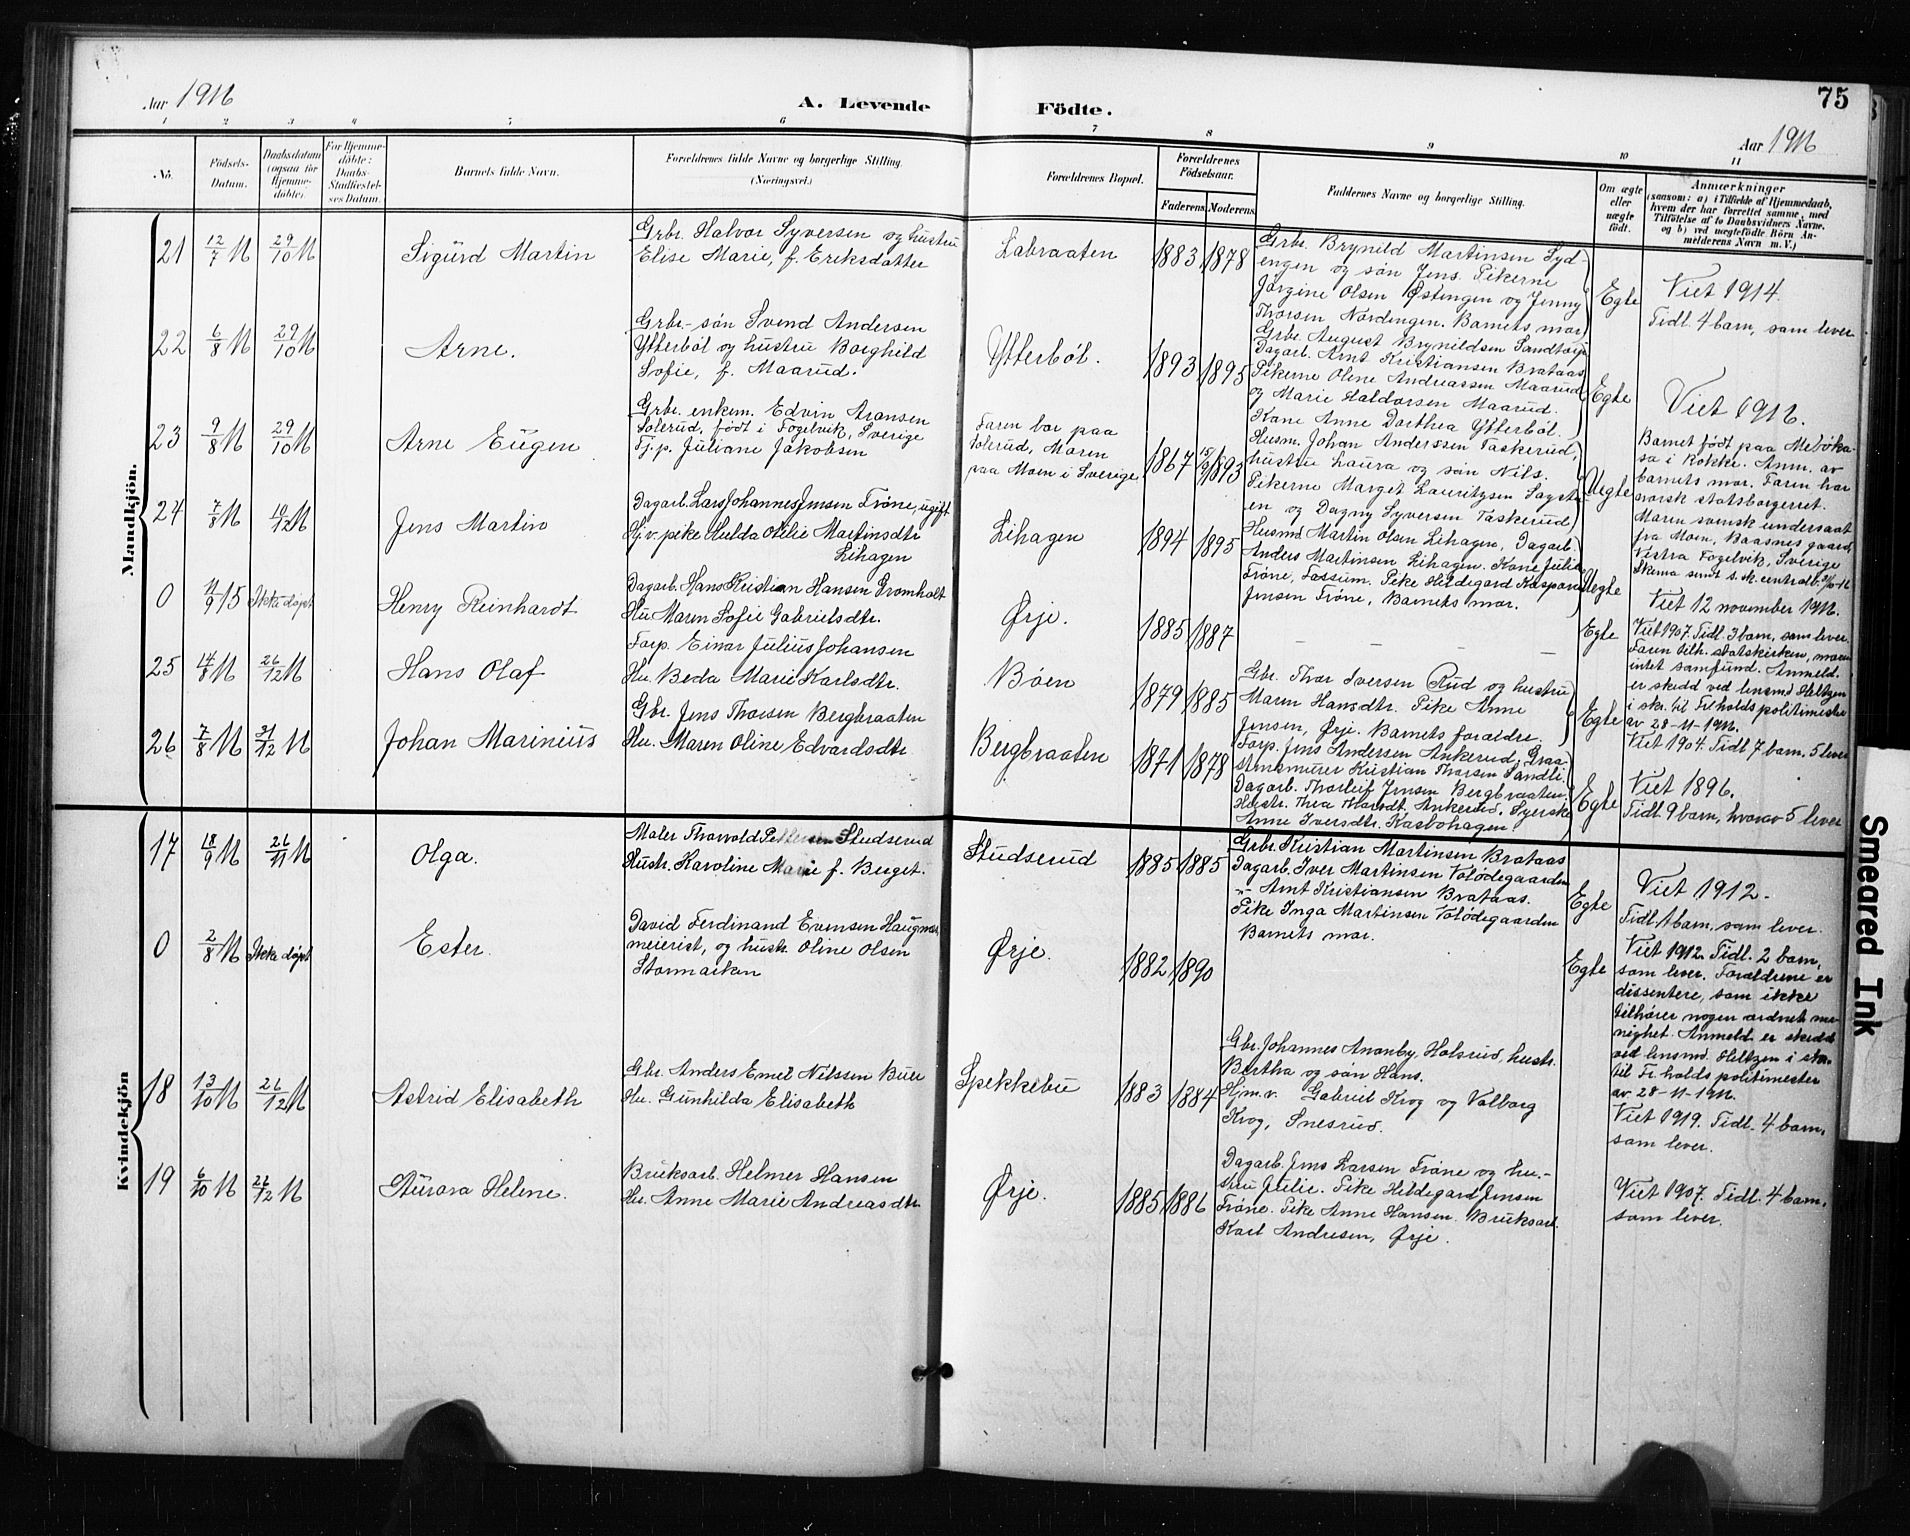 Aar 1916
A. Levende
Födte.
75
Aar 1916
1 2 3 4 5 6 7 8 9 10 11
No.
Födsels-Datum.
Daabsdatum (ogsaa for Hjemme-döbte).
For Hjemme-döbte: Daabs-Stadfæstel-ses Datum.
Barnets fulde Navn.
Forældrenes fulde Navne og borgerlige Stilling.
(Næringsvei.)
Forældrenes Bopæl.
Forældrenes Födselsaar.
Faderens Moderens
Faddernes Navne og borgerlige Stilling.
Om ægte eller uægte födt.
Anmærkninger
(saasom: a) i Tilfælde af Hjemmedaab,
hvem der har forrettet samme, med
Tilföielse af to Daabsvidners Navne,
og b) ved uægtefödte Börn An-
melderens Navn m. V.)
Mandkjön.
21 12/7 16 29/10 16 Sigurd Martin
Grbr. Halvor Syversen og hustru
Elise Marie, f. Eriksdatter
Labraaten 1883 1878
Grbr. Brynild Martinsen Syd-
engen og søn Jens. Pikerne
Jørgine Olsen Østengen og Jenny
Thorsen Nordengen. Barnets mor.
Egte
Viet 1914.
Tidl. 4 barn, som lever
22 6/8 16 29/10 16 Arne.
Grbr.-søn Svend Andersen
Ytterbøl og hustru Borghild
Sofie, f. Maarud.
Ytterbøl. 1893 1895
Grbr. August Brynildsen Sandtorp
Dagarb. Arnt Kristiansen Brataas
Pikerne Oline Andreassen Maarud
og Marie Haldorsen Maarud.
Kone Anne Dorthea Ytterbøl.
Egte
Viet 1916.
23 9/8 16 29/10 16 Arne Eugen
Grbr. enkem. Edvin Aronsen
Solerud, født i Fogelvik, Sverige
Tj.p. Juliane Jakobsen
Faren bor paa
Solerud, Moren
paa Moen i Sverige
1867 15/9 1893
Husm. Johan Anderssen Taskerud,
hustru Laura og søn Nils.
Pikerne Marget Lauritzsen Sagstu-
en og Dagny Syversen Taskerud
Uegte
Barnet født paa Mebøka-
sa i Rokke. Anm. av
barnets mor. Faren har
norsk statsborgerret.
Moren svensk undersaat
fra Moen, Baasnes gaard,
Vestra Fogelvik, Sverige
Skema sendt s. sk. centralb.
24 7/8 16 10/12 16 Jens Martin
Dagarb. Lars Johannes Jensen Trøne, ugift
Hj.v. pike Helda Otilie Martinsdtr
Lihagen
Lihagen 1894 1895
Husmd Martin Olsen Lihagen, Dagarb.
Anders Martinsen Lihagen. Kone Julie
Trøne, Fossum. Pike Hildegard Kasparn
Jensen Trøne, Barnets mor.
Uegte
Viet 12 november 1916.
0 11/9 15 Ikke døpt Henry Reinhardt
Dagarb. Hans Kristian Hansen Gromholt
Hu Maren Sofie Gabrielsdtr.
Ørje. 1885 1887
— — —
Egte
Viet 1907. Tidl. 3 barn, som lever.
Faren tilh. statskirken, moren
intet samfund. Anmeld.
er skedd ved lensmd Heltzen
i skr. til Fr.holds politimester
av 28-11-1916.
25 14/8 16 26/12 16 Hans Olaf
Forp. Einar Julius Johansen
Hu. Beda Marie Karlsdtr.
Bøen 1879 1885
Gbr. Thor Iversen Rud og hustru
Maren Hansdtr. Pike Anne
Jensen, Ørje. Barnets forældre.
Egte
Viet 1904. Tidl 7 barn. 5 lever
26 7/8 16 31/12 16 Johan Marinius
Gbr. Jens Thorsen Bergbraaten
Hu. Maren Oline Edvardsdtr
Bergbraaten 1871 1878
Forp. Jens Andersen Ankerud. Graa-
stensmurer Kristian Thorsen Sandli.
Dagarb. Thorleif Jensen Bergbraaten.
Hustr. Thea Thorsdt. Ankerud. Syerske
Anne Iversdtr. Kasbohagen
Egte
Viet 1896.
Tidl. 9 barn, hvorav 5 lever
Kvindekjön
17 18/9 16 26/11 16 Olga.
Maler Thorvold Studserud
Hustr. Karoline Marie f. Berget.
Studserud 1885 1885
Grbr. Kristian Martinsen Brataas
Dagarb. Iver Martinsen Volødegaarden
" Arnt Kristiansen Brataas.
Pike Inga Martinsen Volødegaarden
Barnets mor.
Egte
Viet 1912.
Tidl. 1 barn, som lever.
0 2/8 16 Ikke døpt Ester.
David Ferdinand Evensen Haugmar,
meierist, og hustr. Oline Olsen
Stormarken
Ørje. 1882 1890
Egte
Viet 1912. Tidl. 2 barn,
som lever. Forældrene er
dissentere, som ikke
tilhører nogen ordnet me-
nighet. Anmeld. er skedd
ved lensmd. Heltzen i skr.
til Fr.holds politimester
av 28-11-1916.
18 13/10 16 26/12 16 Astrid Elisabeth
Gbr. Anders Emil Nilssen Buer
Hu. Gunhilda Elisabeth
Spekkebu 1883 1884
Gbr. Johannes Ananby, Holsrud, hustr.
Bertha og søn Hans.
Hj.m.v. Gabriel Krog og Valborg
Krog, Snesrud.
Viet 1919. Tidl. 4 barn,
som lever.
19 6/10 16 26/12 16 Aurora Helene.
Bruksarb. Helmer Hansen
Hu. Anne Marie Andreasdtr
Ørje. 1885 1886
Dagarb. Jens Larsen Trøne og hu-
stru Julie. Pike Hildegard Jensen
Trøne. Pike Anne Hansen. Bruksarb.
Karl Andresen, Ørje.
Viet 1907. Tidl. 4 barn,
som lever.
Smeared Ink